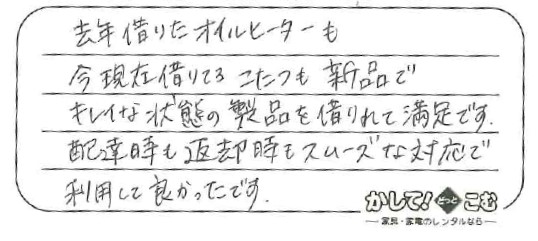 去年借りたオイルヒーターも
今現在借りてるこたつも新品で
キレイな状態の製品を借りれて満足です.
配達時も返却時もスムーズな対応で
利用して良かったです.
かして!どっとこむ
家具・家電のレンタルなら